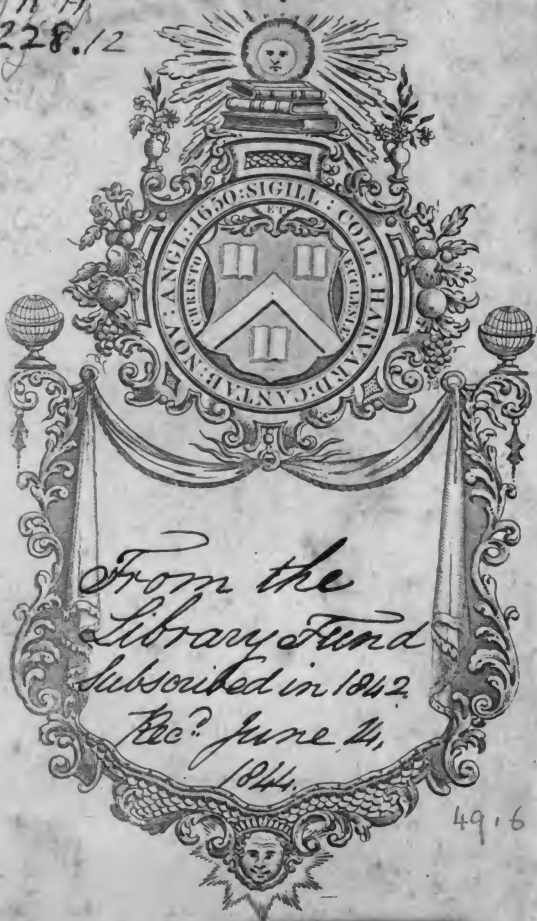 228.12
SIGILL : COLL : HARVARD : CANTAB : NOV : ANGL : 1650 :
CHRISTO ET ECCLESIÆ
From the
Library Fund
subscribed in 1842
Rec.d June 21,
1844.
49.6